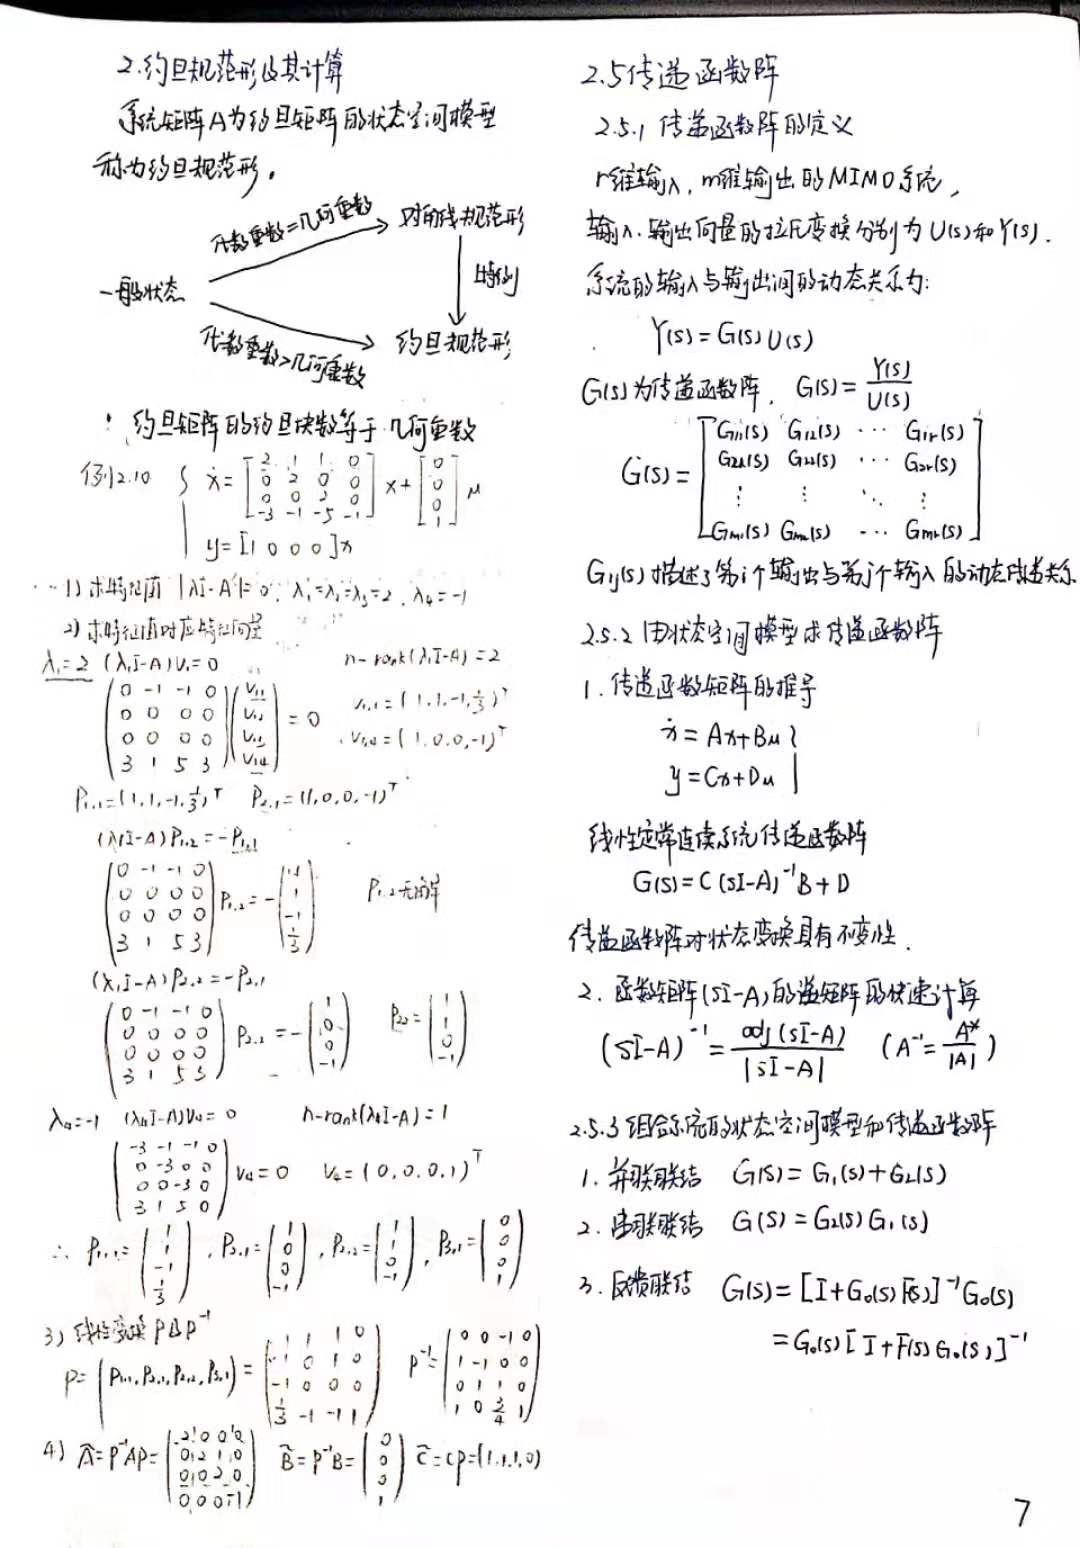 2.约旦规范形及其计算
系统矩阵A为约旦矩阵的状态空间模型
称为约旦规范形。
代数重数=几何重数
对角线规范形
一般状态
特例
代数重数>几何重数
约旦规范形
约旦矩阵的约旦块数等于几何重数
例2.10 { ẋ= [2 1 1 0; 0 2 0 0; 0 0 2 0; -3 -1 -5 -1] x + [0; 0; 0; 1] u
y=[1 0 0 0]x
1) 求特征值 |λI-A|=0, λ₁=λ₂=λ₃=2, λ₄=-1
2) 求特征值对应特征向量
λ₁=2 (λ₁I-A)V₁=0 n-rank(λ₁I-A)=2
(0 -1 -1 0; 0 0 0 0; 0 0 0 0; 3 1 5 3)(V₁₁; V₁₂; V₁₃; V₁₄)=0
V₁,₁=(1,1,-1,1/3)ᵀ
=(1,0,0,-1)ᵀ
P₁,₁=(1,1,-1,1/3)ᵀ P₂,₁=(1,0,0,-1)ᵀ
(λ₁I-A)P₁,₂=-P₁,₁
(0 -1 -1 0; 0 0 0 0; 0 0 0 0; 3 1 5 3)P₁,₂=-(1; 1; -1; 1/3) P₁,₂无解
(λ₁I-A)P₂,₂=-P₂,₁
(0 -1 -1 0; 0 0 0 0; 0 0 0 0; 3 1 5 3)P₂,₂=-(1; 0; 0; -1) P₂₂=(1; 1; 0; -1)
λ₄=-1 (λ₄I-A)V₄=0 n-rank(λ₄I-A)=1
(-3 -1 -1 0; 0 -3 0 0; 0 0 -3 0; 3 1 5 0)V₄=0 V₄=(0,0,0,1)ᵀ
∴ P₁,₁=(1; 1; -1; 1/3), P₂,₁=(1; 0; 0; -1), P₂,₂=(1; 1; 0; -1), P₃,₁=(0; 0; 0; 1)
3) 线性变换 P及P⁻¹
P=(P₁,₁, P₂,₁, P₂,₂, P₃,₁)=(1 1 1 0; 1 0 1 0; -1 0 0 0; 1/3 -1 -1 1) P⁻¹=(0 0 -1 0; 1 -1 0 0; 0 1 1 0; 1 0 3/4 1)
4) Ā=P⁻¹AP=(2 0 0 0; 0 2 1 0; 0 0 2 0; 0 0 0 -1) B̃=P⁻¹B=(0; 0; 0; 1) C̃=CP=(1,1,1,0)
2.5传递函数阵
2.5.1 传递函数阵的定义
r维输入,m维输出的MIMO系统,
输入、输出向量的拉氏变换分别为U(s)和Y(s).
系统的输入与输出间的动态关系为:
Y(s)=G(s)U(s)
G(s)为传递函数阵, G(s)=Y(s)/U(s)
G(s)=[G₁₁(s) G₁₂(s) ⋯ G₁r(s); G₂₁(s) G₂₂(s) ⋯ G₂r(s); ⋮ ⋮ ⋱ ⋮; Gm₁(s) Gm₂(s) ⋯ Gmr(s)]
Gij(s)描述了第i个输出与第j个输入的动态传递关系
2.5.2 由状态空间模型求传递函数阵
1. 传递函数矩阵的推导
ẋ=Ax+Bu
y=Cx+Du
线性定常连续系统传递函数阵
G(s)=C(sI-A)⁻¹B+D
传递函数阵对状态变换具有不变性.
2. 函数矩阵(sI-A)的逆矩阵的快速计算
(sI-A)⁻¹=adj(sI-A)/|sI-A| (A⁻¹=A*/|A|)
2.5.3组合系统的状态空间模型和传递函数阵
1. 并联联结 G(s)=G₁(s)+G₂(s)
2. 串联联结 G(s)=G₂(s)G₁(s)
3. 反馈联结 G(s)=[I+G₀(s)F(s)]⁻¹G₀(s)
=G₀(s)[I+F(s)G₀(s)]⁻¹
7